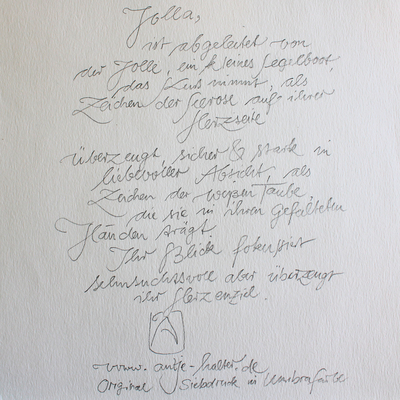 Jolla,
ist abgeleitet von
der Jolle, ein kleines Segelboot,
das Kurs nimmt, als
Zeichen der auf ihrer
Herzseite
überzeugt, sicher & stark in
liebevoller Absicht, als
Zeichen der weißen Taube,
die sie in ihren gefalteten
Händen trägt.
Ihr Blick fokussiert
sehnsuchtsvoll aber überzeugt
ihr Herzenziel.
www.antje-halter.de
Original Siebdruck in Umbrafarbe